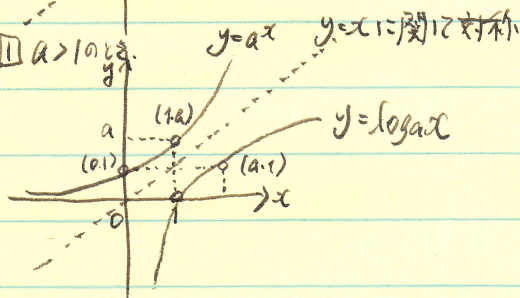 1 a>1のとき
y
y=a^x
y=xに関して対称
a
(1.a)
y=logax
(0.1)
(a.1)
x
0
1